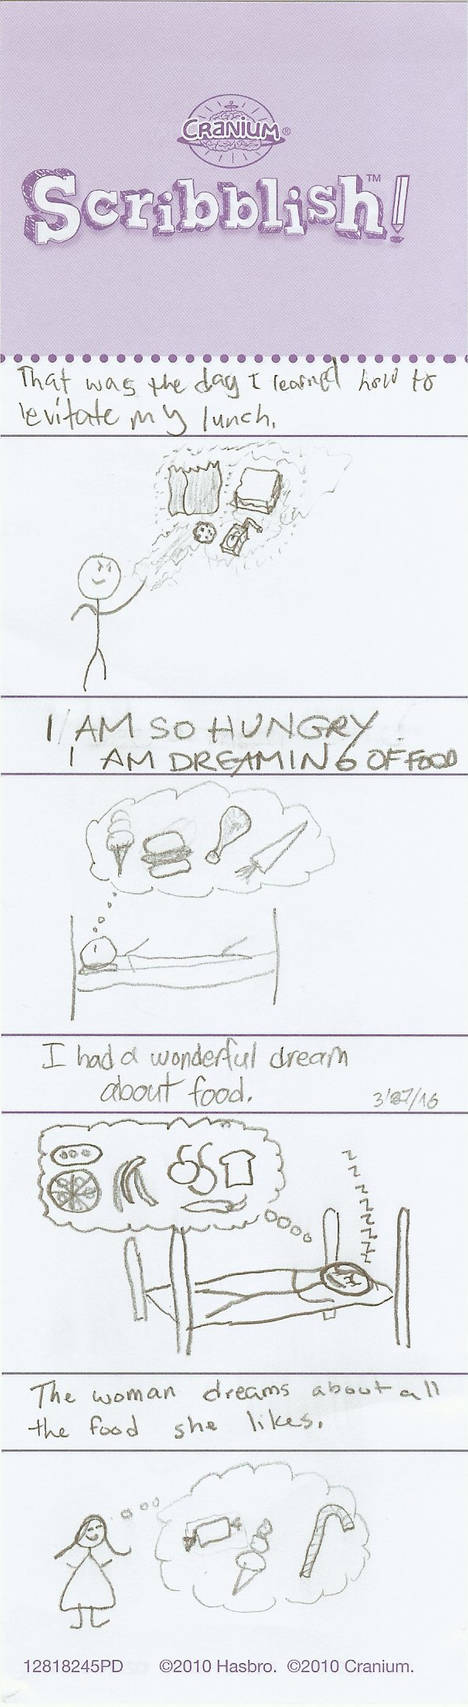 CRANIUM®
Scribblish!™
That was the day I learned how to
levitate my lunch.
I AM SO HUNGRY
I AM DREAMING OF FOOD
I had a wonderful dream
about food.
The woman dreams about all
the food she likes.
z z z z z z z z z
12818245PD ©2010 Hasbro. ©2010 Cranium.